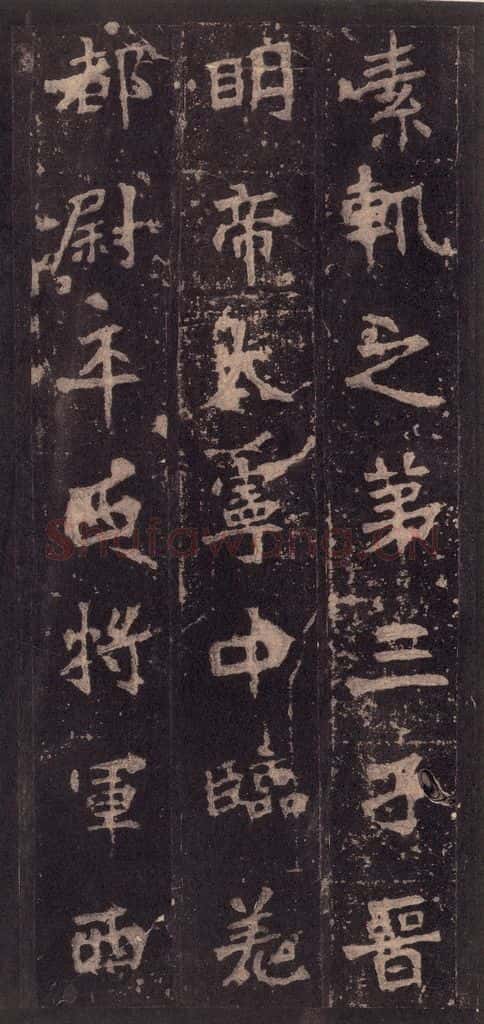 素軌之第三子晉
明帝太寧中臨羌
都尉平西將軍西
Shufawang.CN